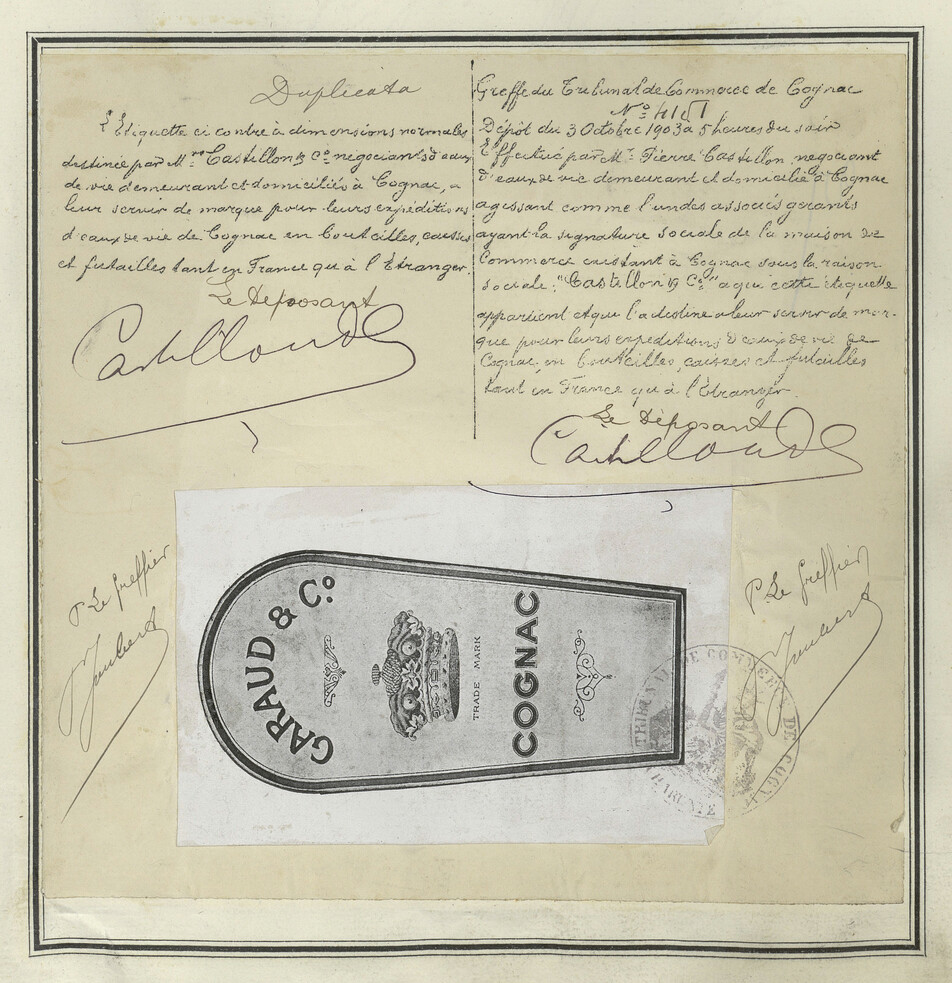 Duplicata
L'Etiquette ci contre à dimensions normales
destinée par M.rs Castillon & Co. négociants d'eaux
de vie demeurant et domiciliés à Cognac, a
leur servir de marque pour leurs expéditions
d'eaux de vie de Cognac en bouteilles, caisses
et futailles tant en France qu'à l'Etranger.
Le Déposant
Greffe du Tribunal de Commerce de Cognac
No. 4151
Dépôt du 3 Octobre 1903 à 5 heures du soir
Effectué par M.r Pierre Castillon, négociant
d'eaux de vie demeurant et domicilié à Cognac
agissant comme l'un des associés gérants
ayant la signature sociale de la maison de
Commerce existant à Cognac sous la raison
sociale: "Castillon & Co." a qui cette étiquette
appartient et qui l'a destine a leur servir de mar-
que pour leurs expéditions d'eaux de vie de
Cognac, en bouteilles, caisses et futailles
tant en France qu'à l'Etranger.
Le Déposant
P. Le Greffier
P. Le Greffier
GARAUD & Co.
TRADE MARK
COGNAC
TRIBUNAL DE COMMERCE DE COGNAC
CHARENTE